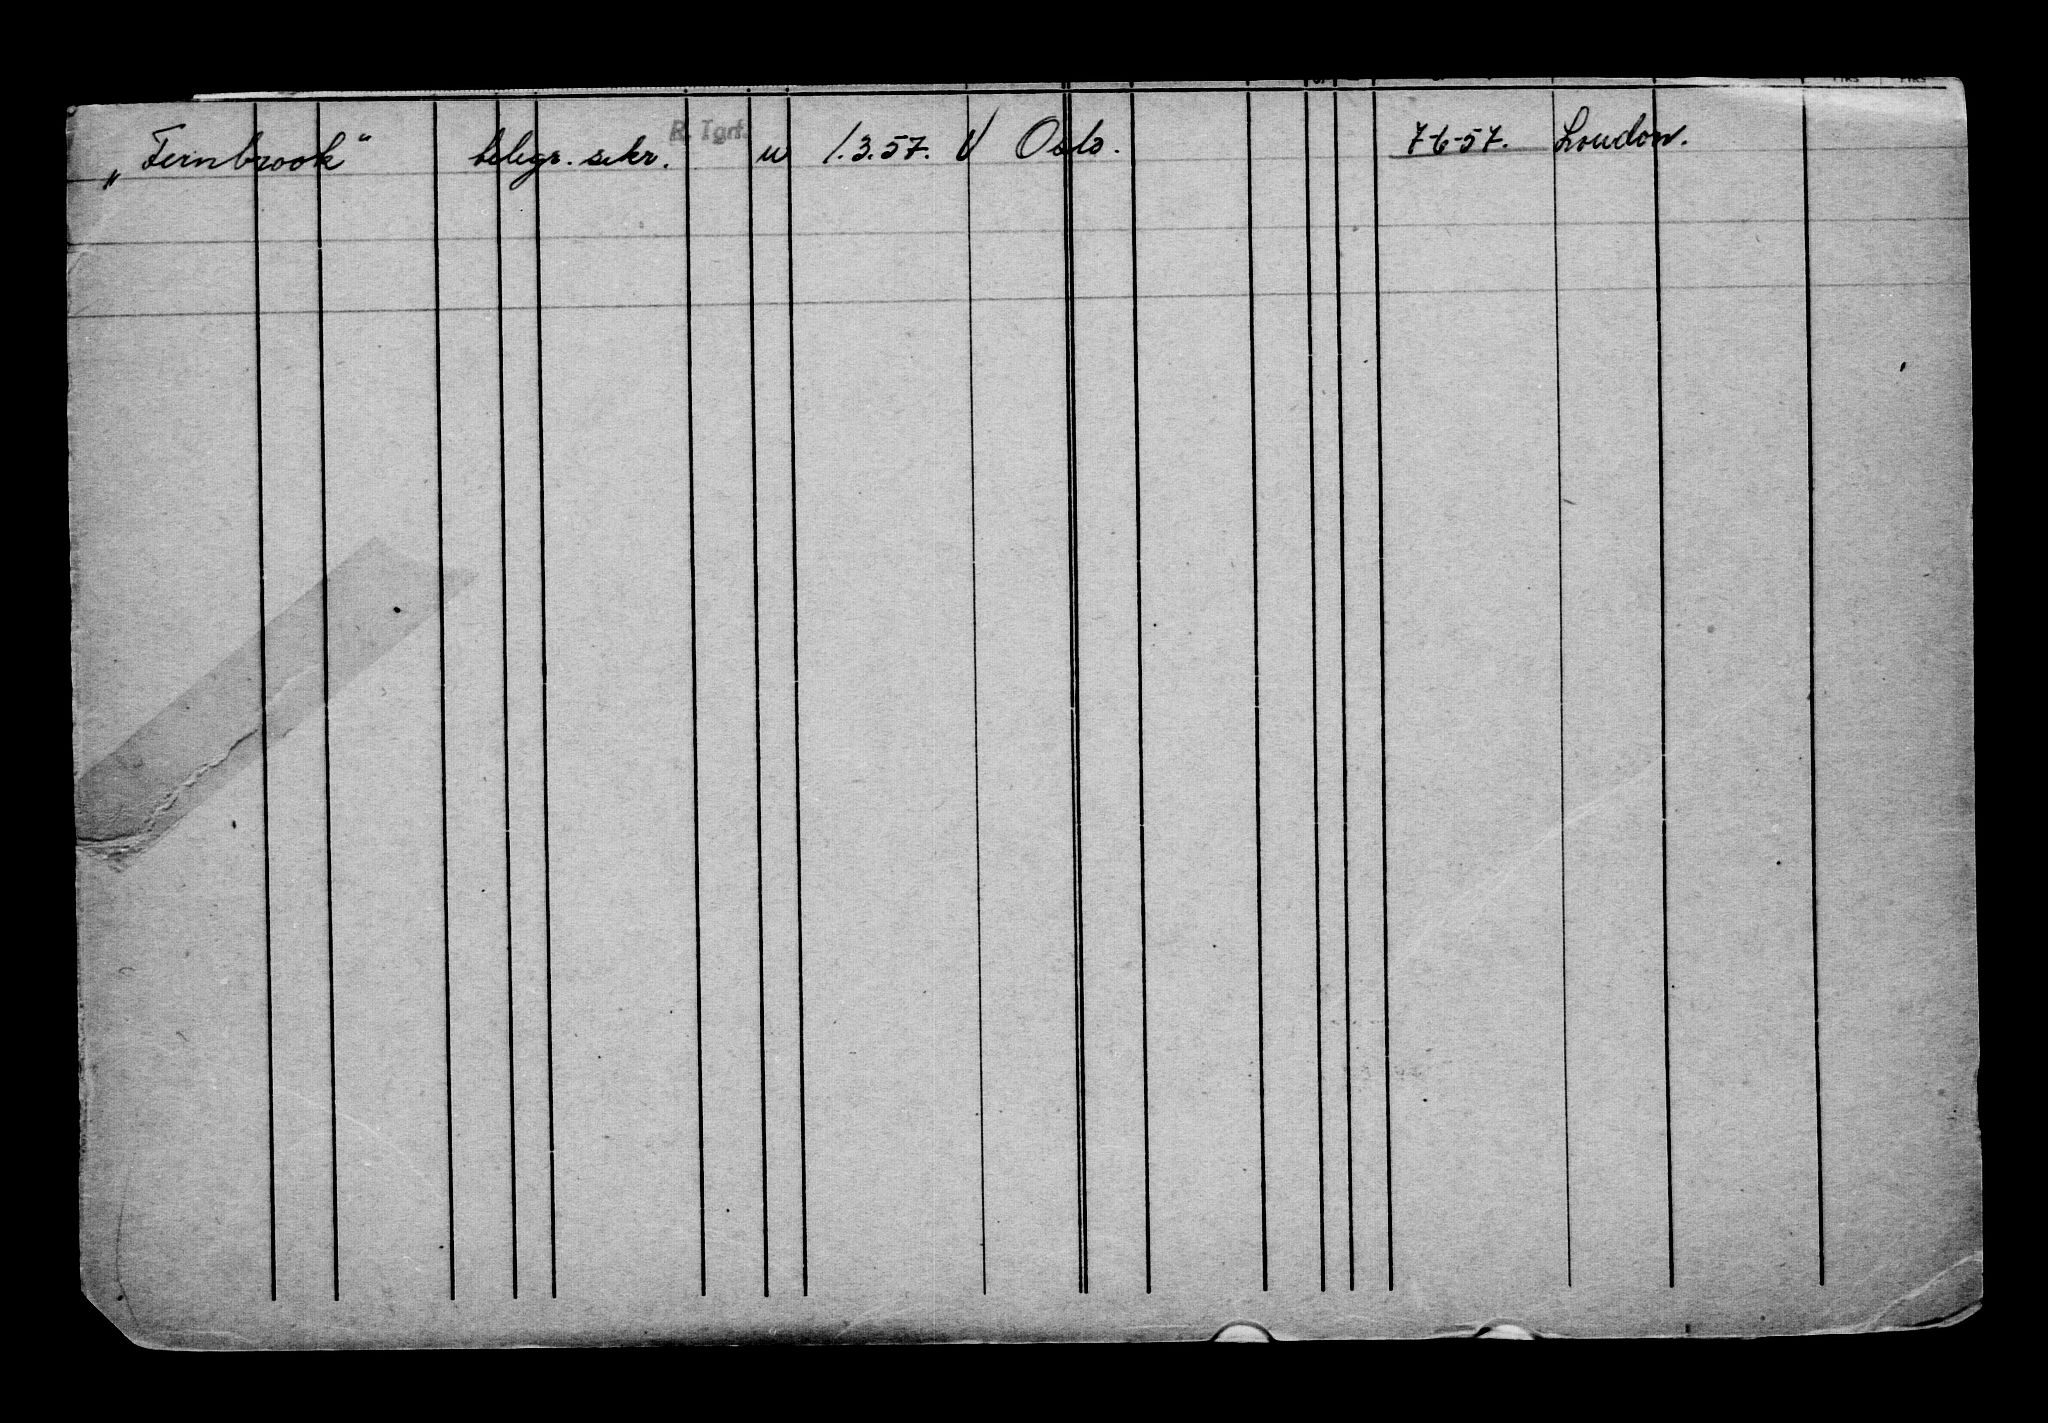 „Fernbrook“ telegr. sekr. R. Tgrf. u 1.3.57. V Oslo. 7-6-57. London.